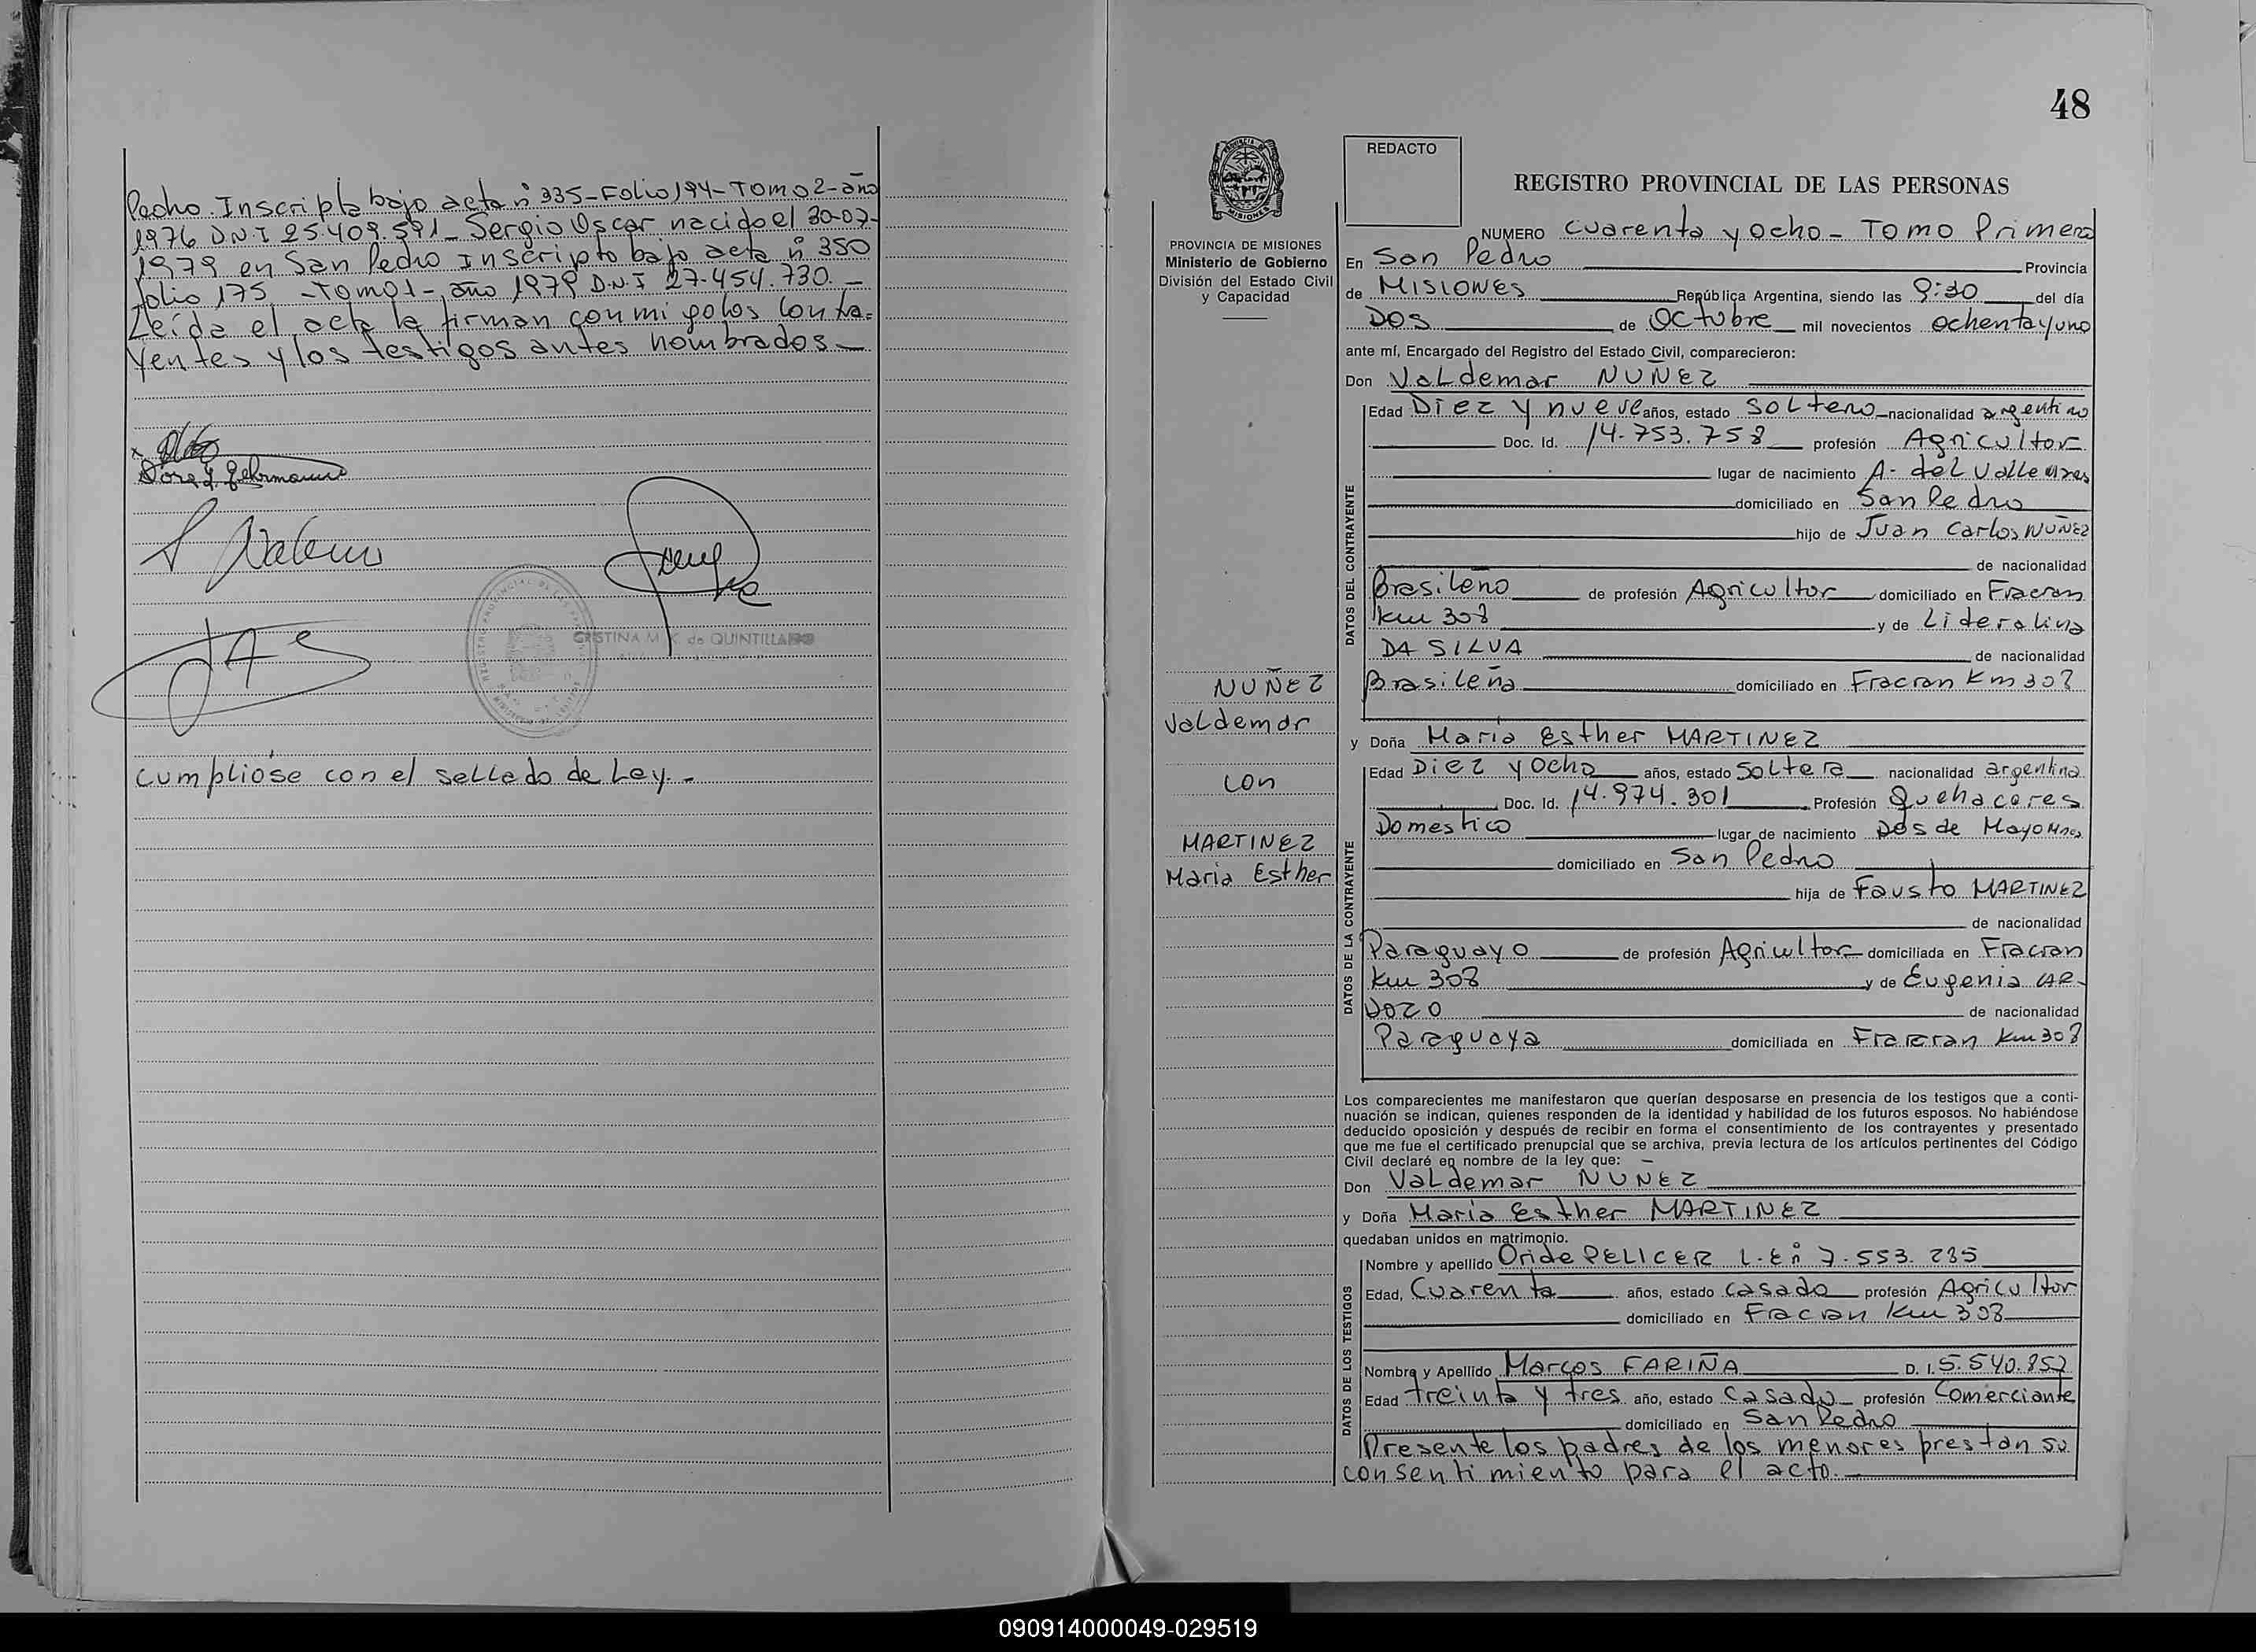 Pedro. Inscripta bajo acta n° 335-Folio 194-Tomo 2-año
1976 D.N.I 25.409.591_ Sergio Oscar nacido el 30-07-
1979 en San Pedro Inscripto bajo acta n° 350
folio 175 -Tomo 1-, año 1979 D.N.I 27.454.730._
Leída el acta la firman con mi go los Contra=
yentes y los testigos antes nombrados_
CRISTINA M. K. de QUINTILLAN
Cumplióse con el sellado de Ley.-
48
REDACTO
REGISTRO PROVINCIAL DE LAS PERSONAS
PROVINCIA DE MISIONES
Ministerio de Gobierno
División del Estado Civil
y Capacidad
NUMERO Cuarenta y Ocho - Tomo Primero
En San Pedro Provincia
de MISIONES República Argentina, siendo las 9:30 del día
DOS de Octubre mil novecientos ochenta y uno
ante mí, Encargado del Registro del Estado Civil, comparecieron:
Don Valdemar NUÑEZ
Edad Diez y nueve años, estado soltero nacionalidad argentino
Doc. Id. 14.753.758 profesión Agricultor
lugar de nacimiento A- del Valle Mnes
domiciliado en San Pedro
hijo de Juan Carlos NUÑEZ
de nacionalidad
Brasileño de profesión Agricultor domiciliado en Fracran
Km 308 y de Lideralina
DA SILVA de nacionalidad
Brasileña domiciliado en Fracran Km 308
DATOS DEL CONTRAYENTE
NUÑEZ
Valdemar
con
MARTINEZ
Maria Esther
y Doña Maria Esther MARTINEZ
Edad Diez y Ocho años, estado Soltera nacionalidad argentina
Doc. Id. 14.974.301 Profesión Quehaceres
Domestico lugar de nacimiento Dos de Mayo Mnes
domiciliado en San Pedro
hija de Fausto MARTINEZ
de nacionalidad
Paraguayo de profesión Agricultor domiciliada en Fracran
Km 308 y de Eugenia CAR-
DOZO de nacionalidad
Paraguaya domiciliada en Fracran Km 308
DATOS DE LA CONTRAYENTE
Los comparecientes me manifestaron que querían desposarse en presencia de los testigos que a conti-
nuación se indican, quienes responden de la identidad y habilidad de los futuros esposos. No habiéndose
deducido oposición y después de recibir en forma el consentimiento de los contrayentes y presentado
que me fue el certificado prenupcial que se archiva, previa lectura de los artículos pertinentes del Código
Civil declaré en nombre de la ley que:
Don Valdemar NUÑEZ
y Doña Maria Esther MARTINEZ
quedaban unidos en matrimonio.
Nombre y apellido Oride PELICER L.E n° 7.553.235
Edad, Cuarenta años, estado casado profesión Agricultor
domiciliado en Fracran Km 308
Nombre y Apellido Marcos FARIÑA D. I. 5.540.857
Edad treinta y tres año, estado Casado profesión Comerciante
domiciliado en San Pedro
DATOS DE LOS TESTIGOS
Presente los padres de los menores prestan su
consentimiento para el acto.
090914000049-029519